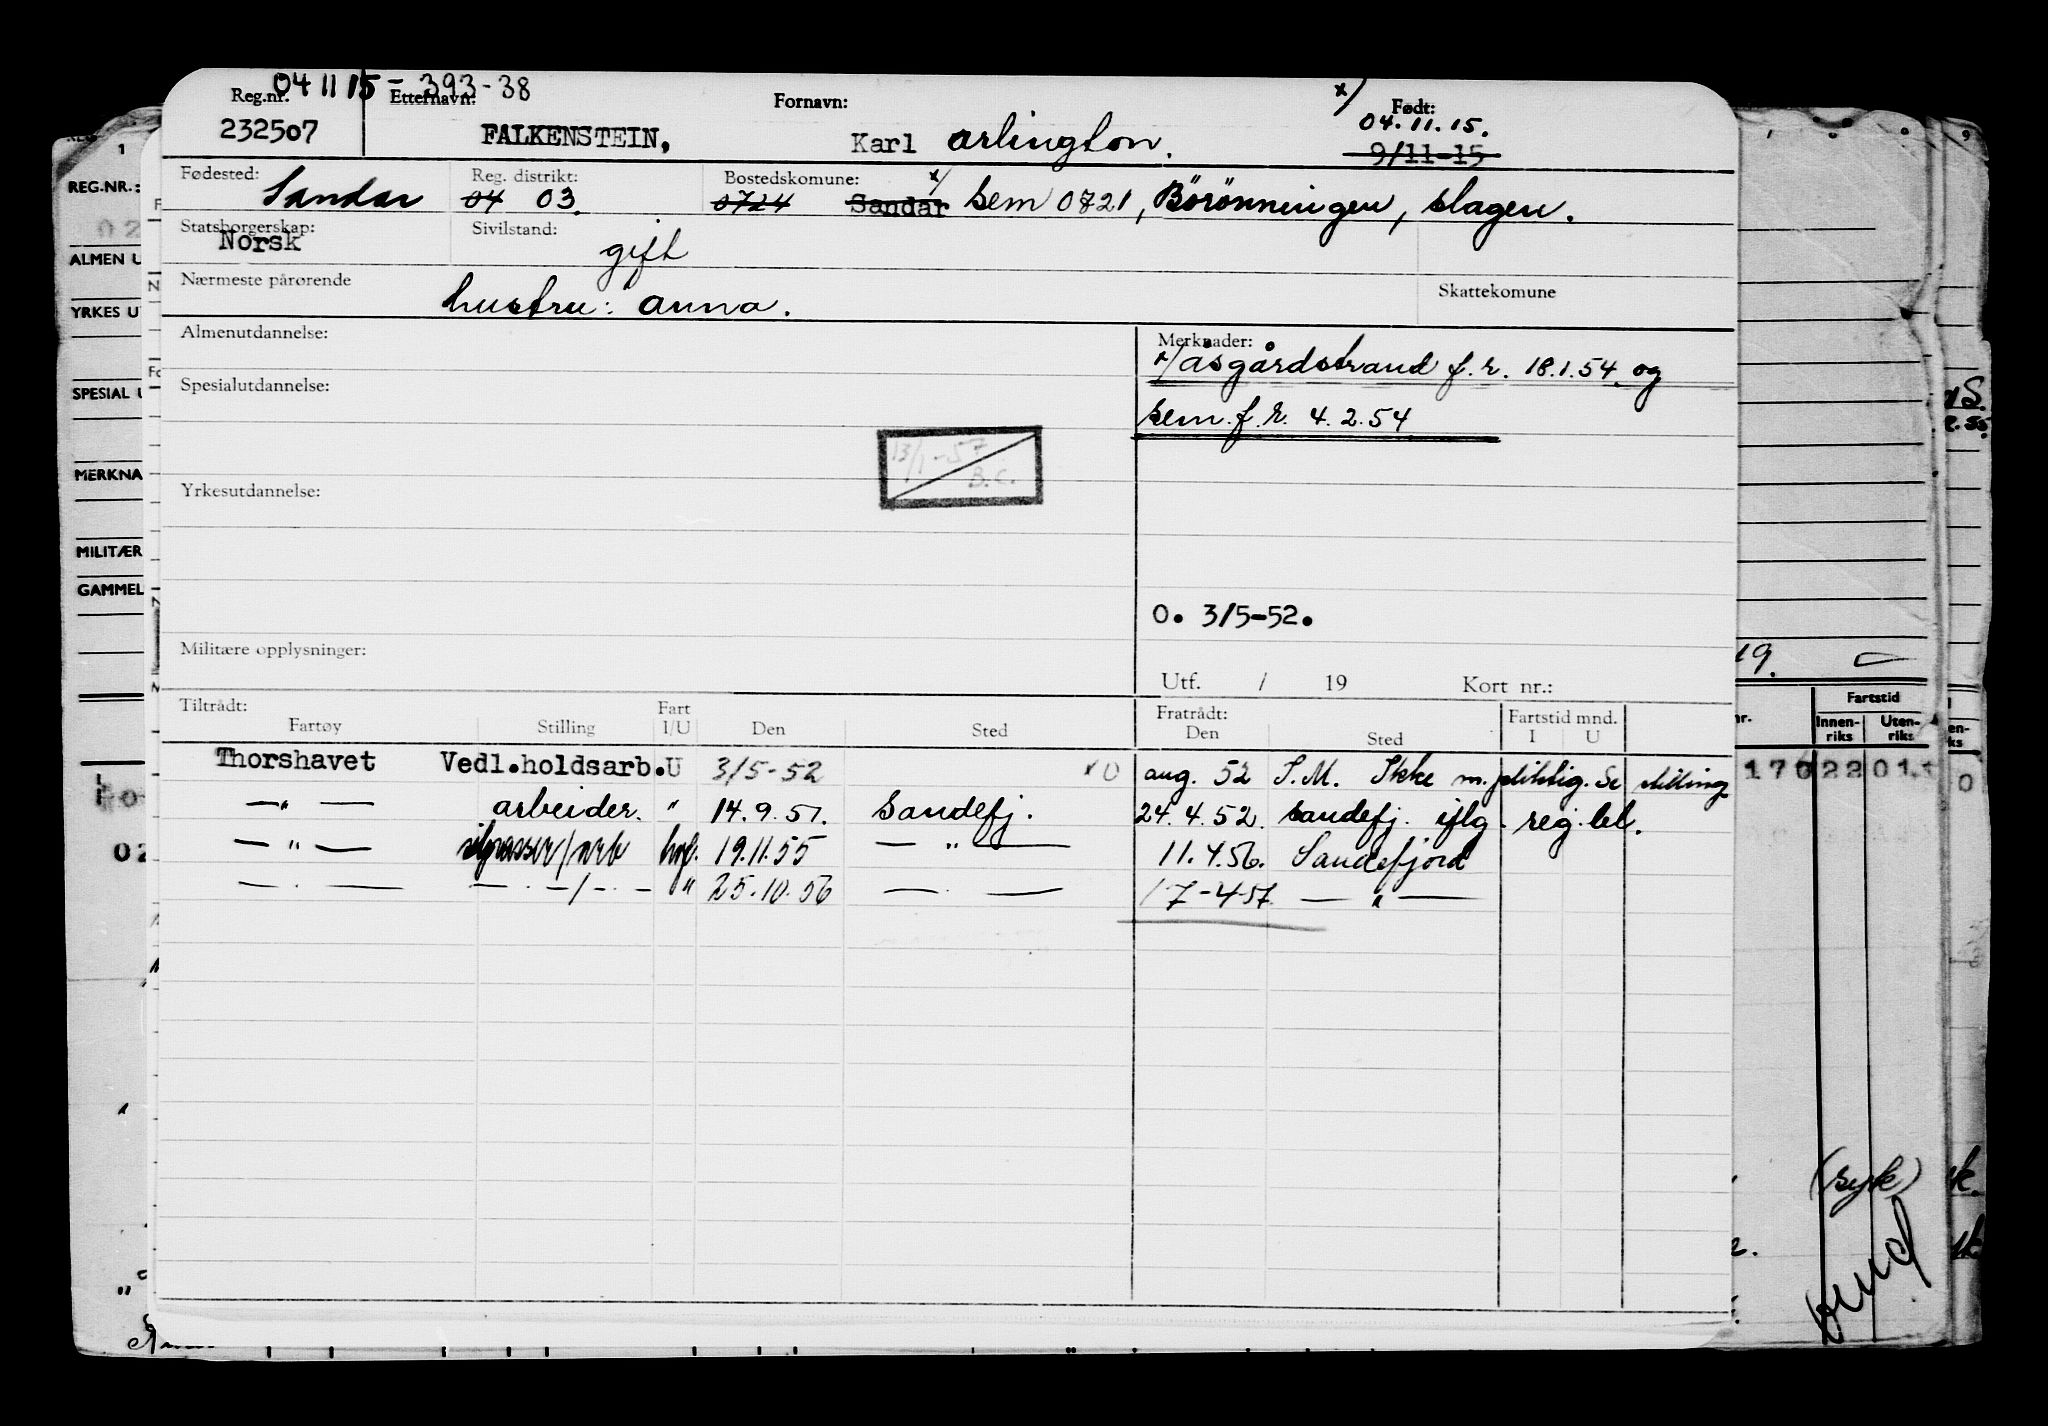 04 11 15 - 393-38
Reg.nr. Etternavn: Fornavn: x/ Født:
232507 FALKENSTEIN, Karl Arlington. 04.11.15.
9/11-15
Fødested: Reg. distrikt: Bostedskomune: x/
Sandar 04 03. 0724 Sandar Sem 0721, Börönningen, Slagen.
Statsborgerskap: Sivilstand:
Norsk gift
Nærmeste pårørende Skattekomune
hustru: Anna.
Almenutdannelse: Merknader:
x/Åsgårdstrand f.r. 18.1.54. og
Spesialutdannelse:
Sem. f.r. 4.2.54
13/1-57
B.C.
Yrkesutdannelse:
O. 3/5-52.
Militære opplysninger:
Utf. / 19 Kort nr.:
Tiltrådt: Fratrådt: Fartstid mnd.
Fartøy Stilling Fart I/U Den Sted Den Sted I U
Thorshavet Vedl.holdsarb. U 3/5-52 aug. 52 S.M. Ikke m.pliktig. Se stilling
—"— arbeider. " 14.9.51. Sandefj. 24.4.52. Sandefj. iflg. reg.bl.
—"— /arb hvf. 19.11.55 —"— 11.4.56. Sandefjord
—"— —"—/—"— " 25.10.56 —"— 17-4-57 —"—
1
REG.NR.:
02
ALMEN U
YRKES UT
SPESIAL U
MERKNA
MILITÆR
GAMMEL
02
9
19.
Fartstid
Innenriks Utenriks
170 22 01
(syk)